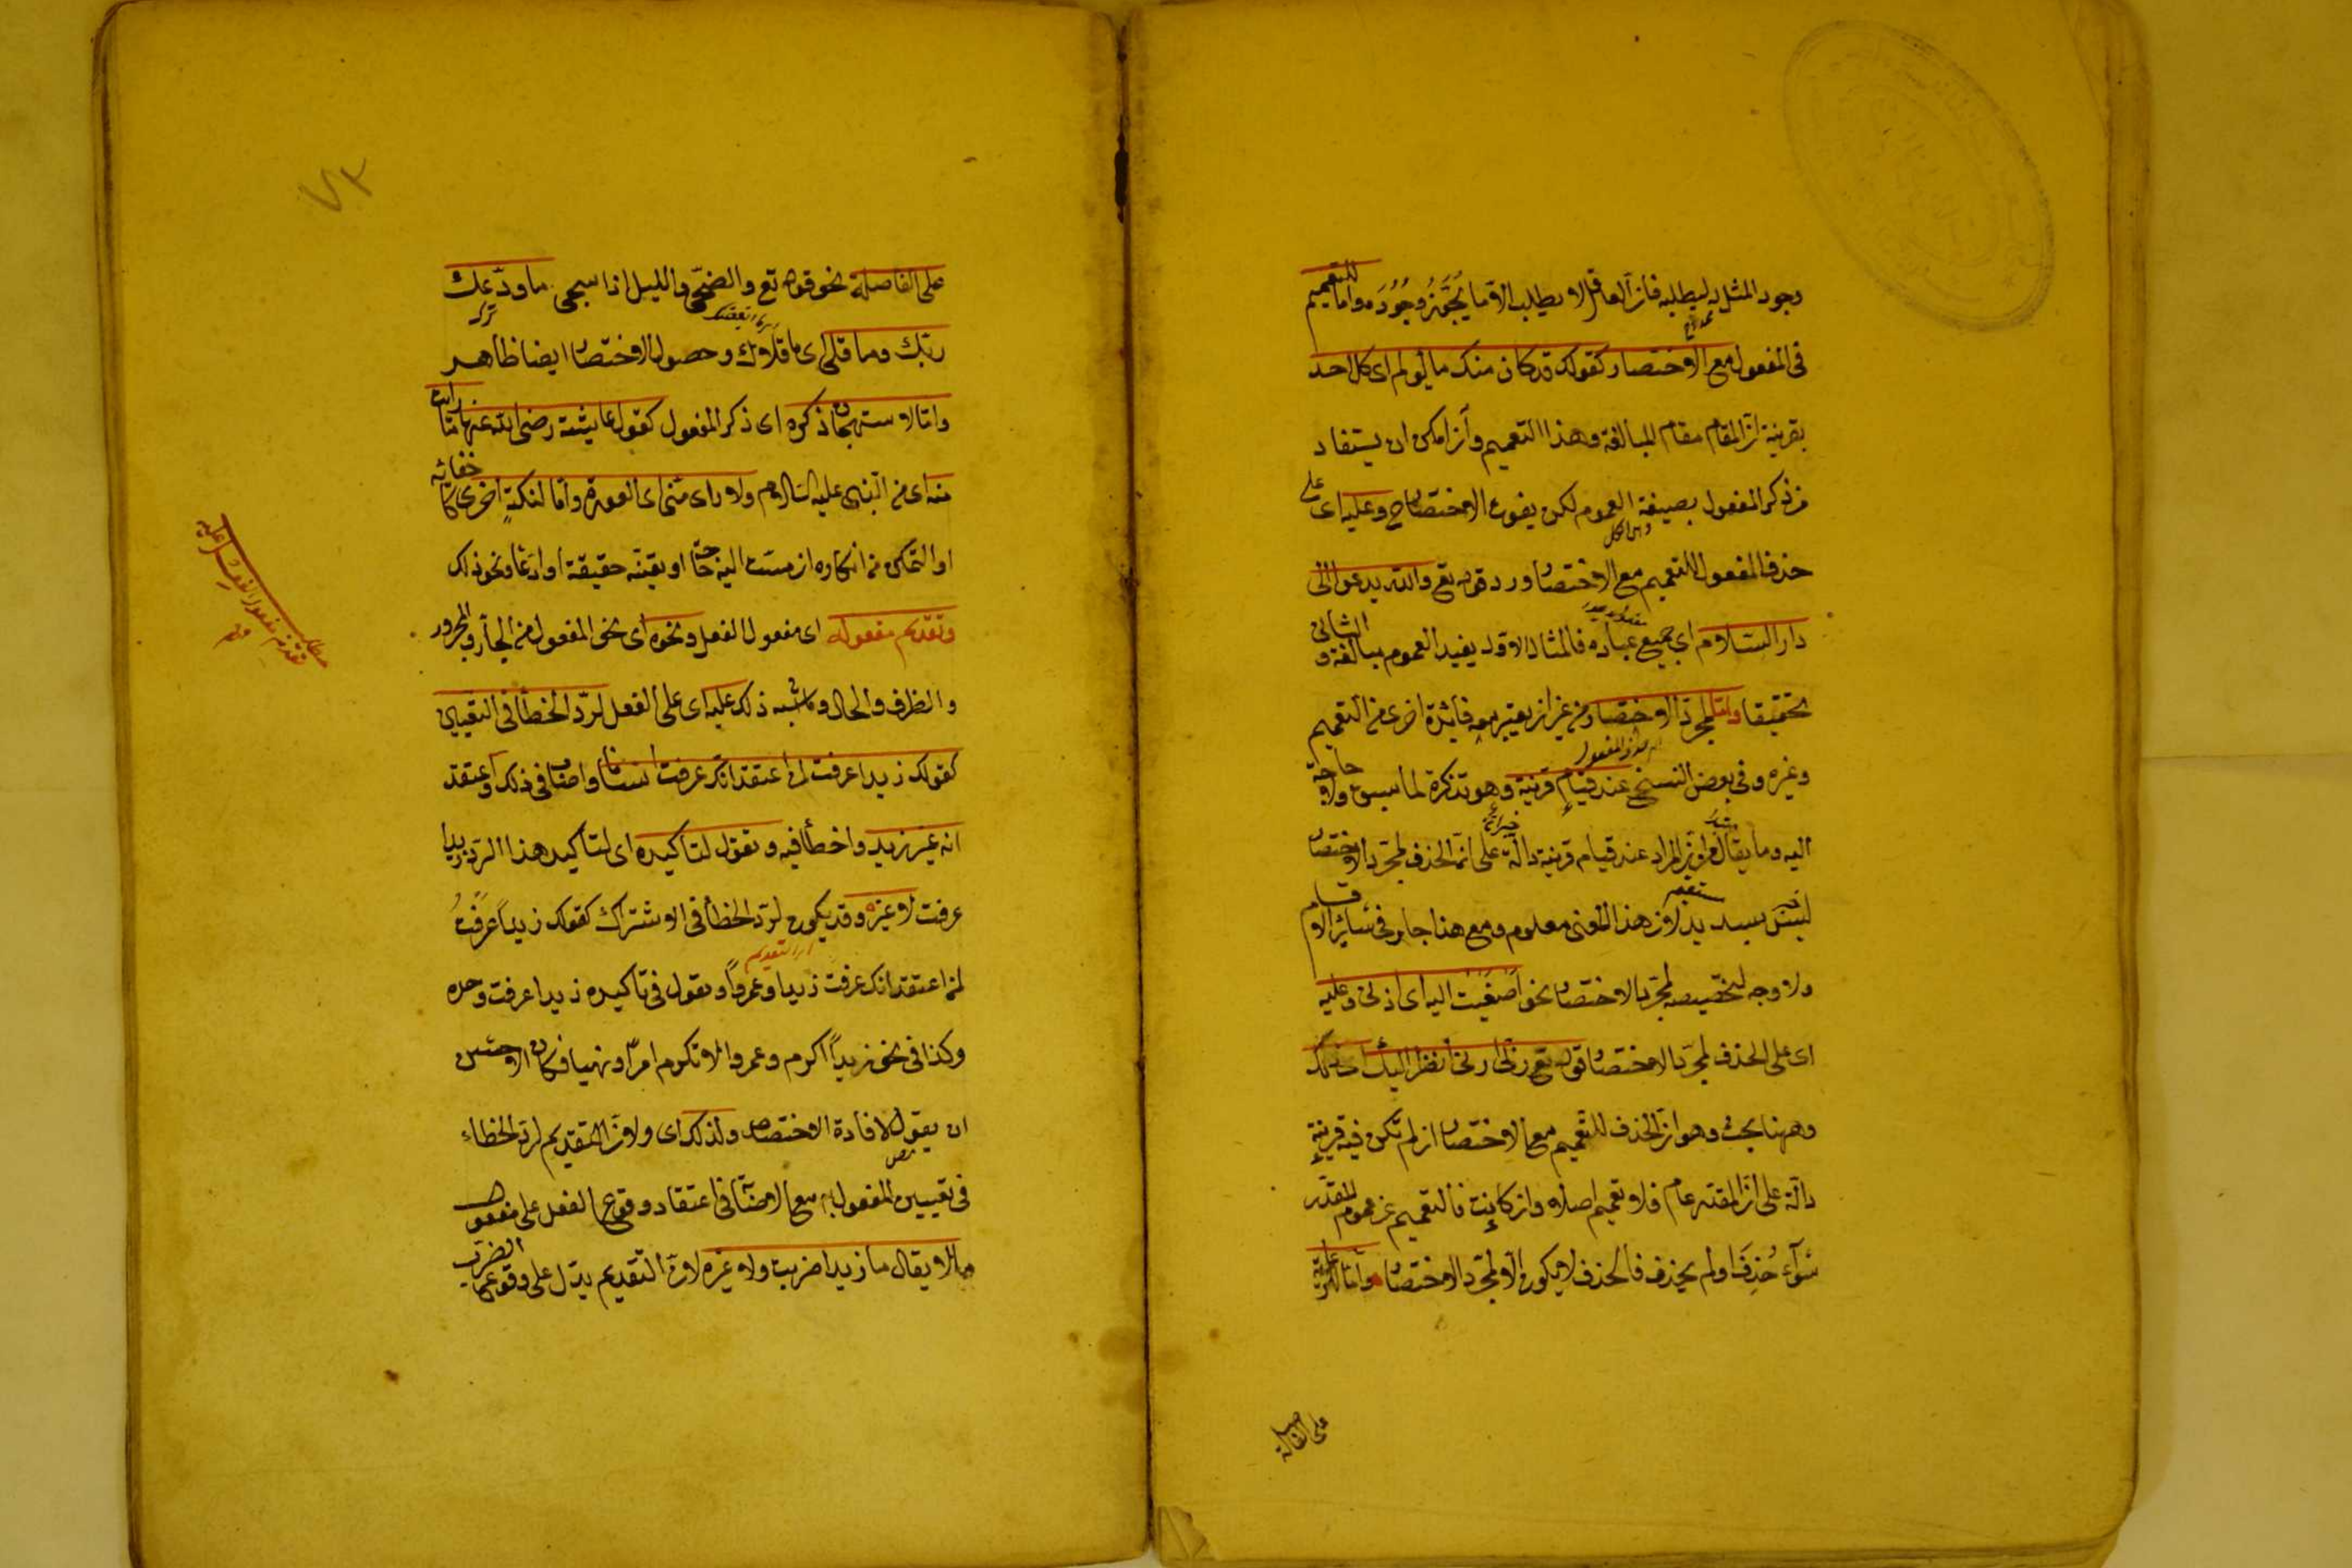 وجود المثل له ليطلبه فان العاقل لا يطلب الا ما يُجَوِّزُ وُجُودَه واما للتعميم
فى المفعول مع الاختصار كقولك قد كان منك ما يؤلم اى كل احد
بقرينة ان المقام مقام المبالغة وهذا التعميم وان امكن ان يستفاد
من ذكر المفعول بصيغة العموم لكن يفوت الاختصار ح وعليه اى على
حذف المفعول للتعميم مع الاختصار ورد قوله تع والله يدعو الى
دار السلام اى جميع عباده فالمثال الاول يفيد العموم مبالغة والثانى
تحقيقا واما لمجرد الاختصار من غير ان يعتبر معه فائدة اخرى من التعميم
وغيره وفى بعض النسخ عند قيام قرينة وهو تذكرة لما سبق ولا حاجة
اليه وما يقال من ان المراد عند قيام قرينة دالة على ان الحذف لمجرد الاختصار
ليس بسديد لان هذا المعنى معلوم ومع هذا جار فى سائر الاقسام
ولا وجه لتخصيصه لمجرد الاختصار نحو اصغيت اليه اى اذنى وعليه
اى على الحذف لمجرد الاختصار قوله تع رب ارنى انظر اليك اى ذاتك
وههنا بحث وهو ان الحذف للتعميم مع الاختصار ان لم تكن فيه قرينة
دالة على ان المقدر عام فلا تعميم اصلا وان كانت فالتعميم من عموم المقدر
سواء حُذِفَ او لم يحذف فالحذف لا يكون الا لمجرد الاختصار واما للرعاية
على الفاصلة
٧٣
على الفاصلة نحو قوله تع والضحى والليل اذا سجى ما ودعك
ربك وما قلى اى ما قلاك وحصول الاختصار ايضا ظاهر
واما لاستهجان ذكره اى ذكر المفعول كقول عايشة رضى الله عنها ما رايت
منه اى من النبى عليه السلام ولا راى منى اى العورة واما لنكتة اخرى كاخفائه
او التمكن من انكاره ان مست اليه حاجة او تعينه حقيقة او ادعاء ونحو ذلك
وتقديم مفعوله اى مفعول الفعل ونحوه اى نحو المفعول من الجار والمجرور
والظرف والحال وما اشبه ذلك عليه اى على الفعل لرد الخطأ فى التعيين
كقولك زيدا عرفت لمن اعتقد انك عرفت انسانا واصاب فى ذلك واعتقد
انه غير زيد واخطأ فيه وتقول لتأكيده اى لتأكيد هذا الرد زيدا
عرفت لا غيره وقد يكون لرد الخطأ فى الاشتراك كقولك زيدا عرفت
لمن اعتقد انك عرفت زيدا وعمروا وتقول فى تاكيده زيدا عرفت وحده
وكذا فى نحو زيدا اكرم وعمروا لا تكرم امرا ونهيا فكان الاحسن
ان يقول لافادة الاختصاص ولذلك اى ولان التقديم لرد الخطاء
فى تعيين المفعول مع الاصابة فى اعتقاد وقوع الفعل على مفعول
ما لا يقال ما زيدا ضربت ولا غيره لان التقديم يدل على وقوع الضرب